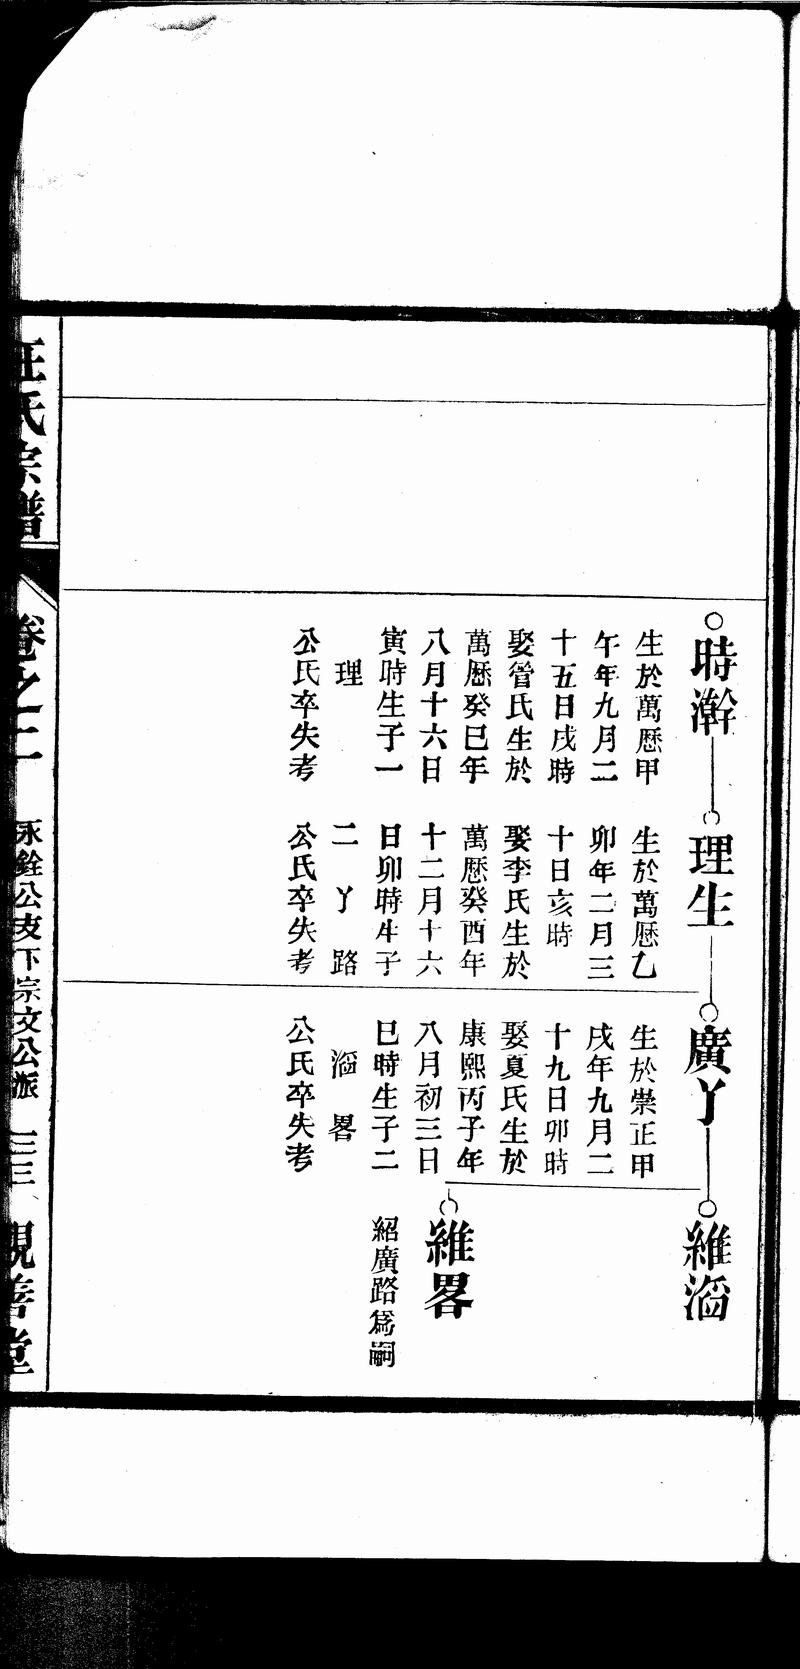 時澣
生於萬歷甲
午年九月二
十五日戌時
娶管氏生於
萬歷癸巳年
八月十六日
寅時生子一
理
公氏卒失考
理生
生於萬歷乙
卯年二月三
十日亥時
娶李氏生於
萬歷癸酉年
十二月十六
日卯時生子
二 丫 路
公氏卒失考
廣丫
生於崇正甲
戌年九月二
十九日卯時
娶夏氏生於
康熙丙子年
八月初三日
巳時生子二
滔 畧
公氏卒失考
維滔
維畧
紹廣路爲嗣
汪氏宗譜
卷之二
永銓公支下宗文公派
三三
親善堂